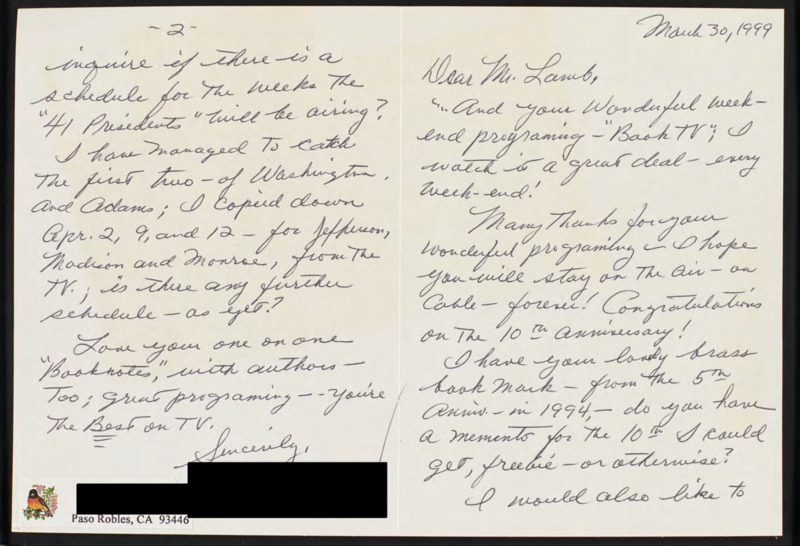 March 30, 1999
Dear Mr. Lamb,
"- And your Wonderful week-
end programing - "Book TV"; I
watch it a great deal - every
week-end!
Many thanks for your
wonderful programing - I hope
you will stay on the air - on
Cable - forever! Congratulations
on the 10th anniversary!
I have your lovely brass
book mark - from the 5th
Anniv - in 1994, - do you have
a memento for the 10th I could
get, freebie - or otherwise?
I would also like to
- 2 -
inquire if there is a
schedule for the weeks the
"41 Presidents" will be airing?
I have managed to catch
the first two - of Washington
and Adams; I copied down
Apr. 2, 9, and 12 - for Jefferson,
Madison and Monroe, from the
TV.; is there any further
schedule - as yet?
Love your one on one
"Booknotes," with authors -
too; great programing -- you're
the Best on TV.
Sincerely,
Paso Robles, CA 93446